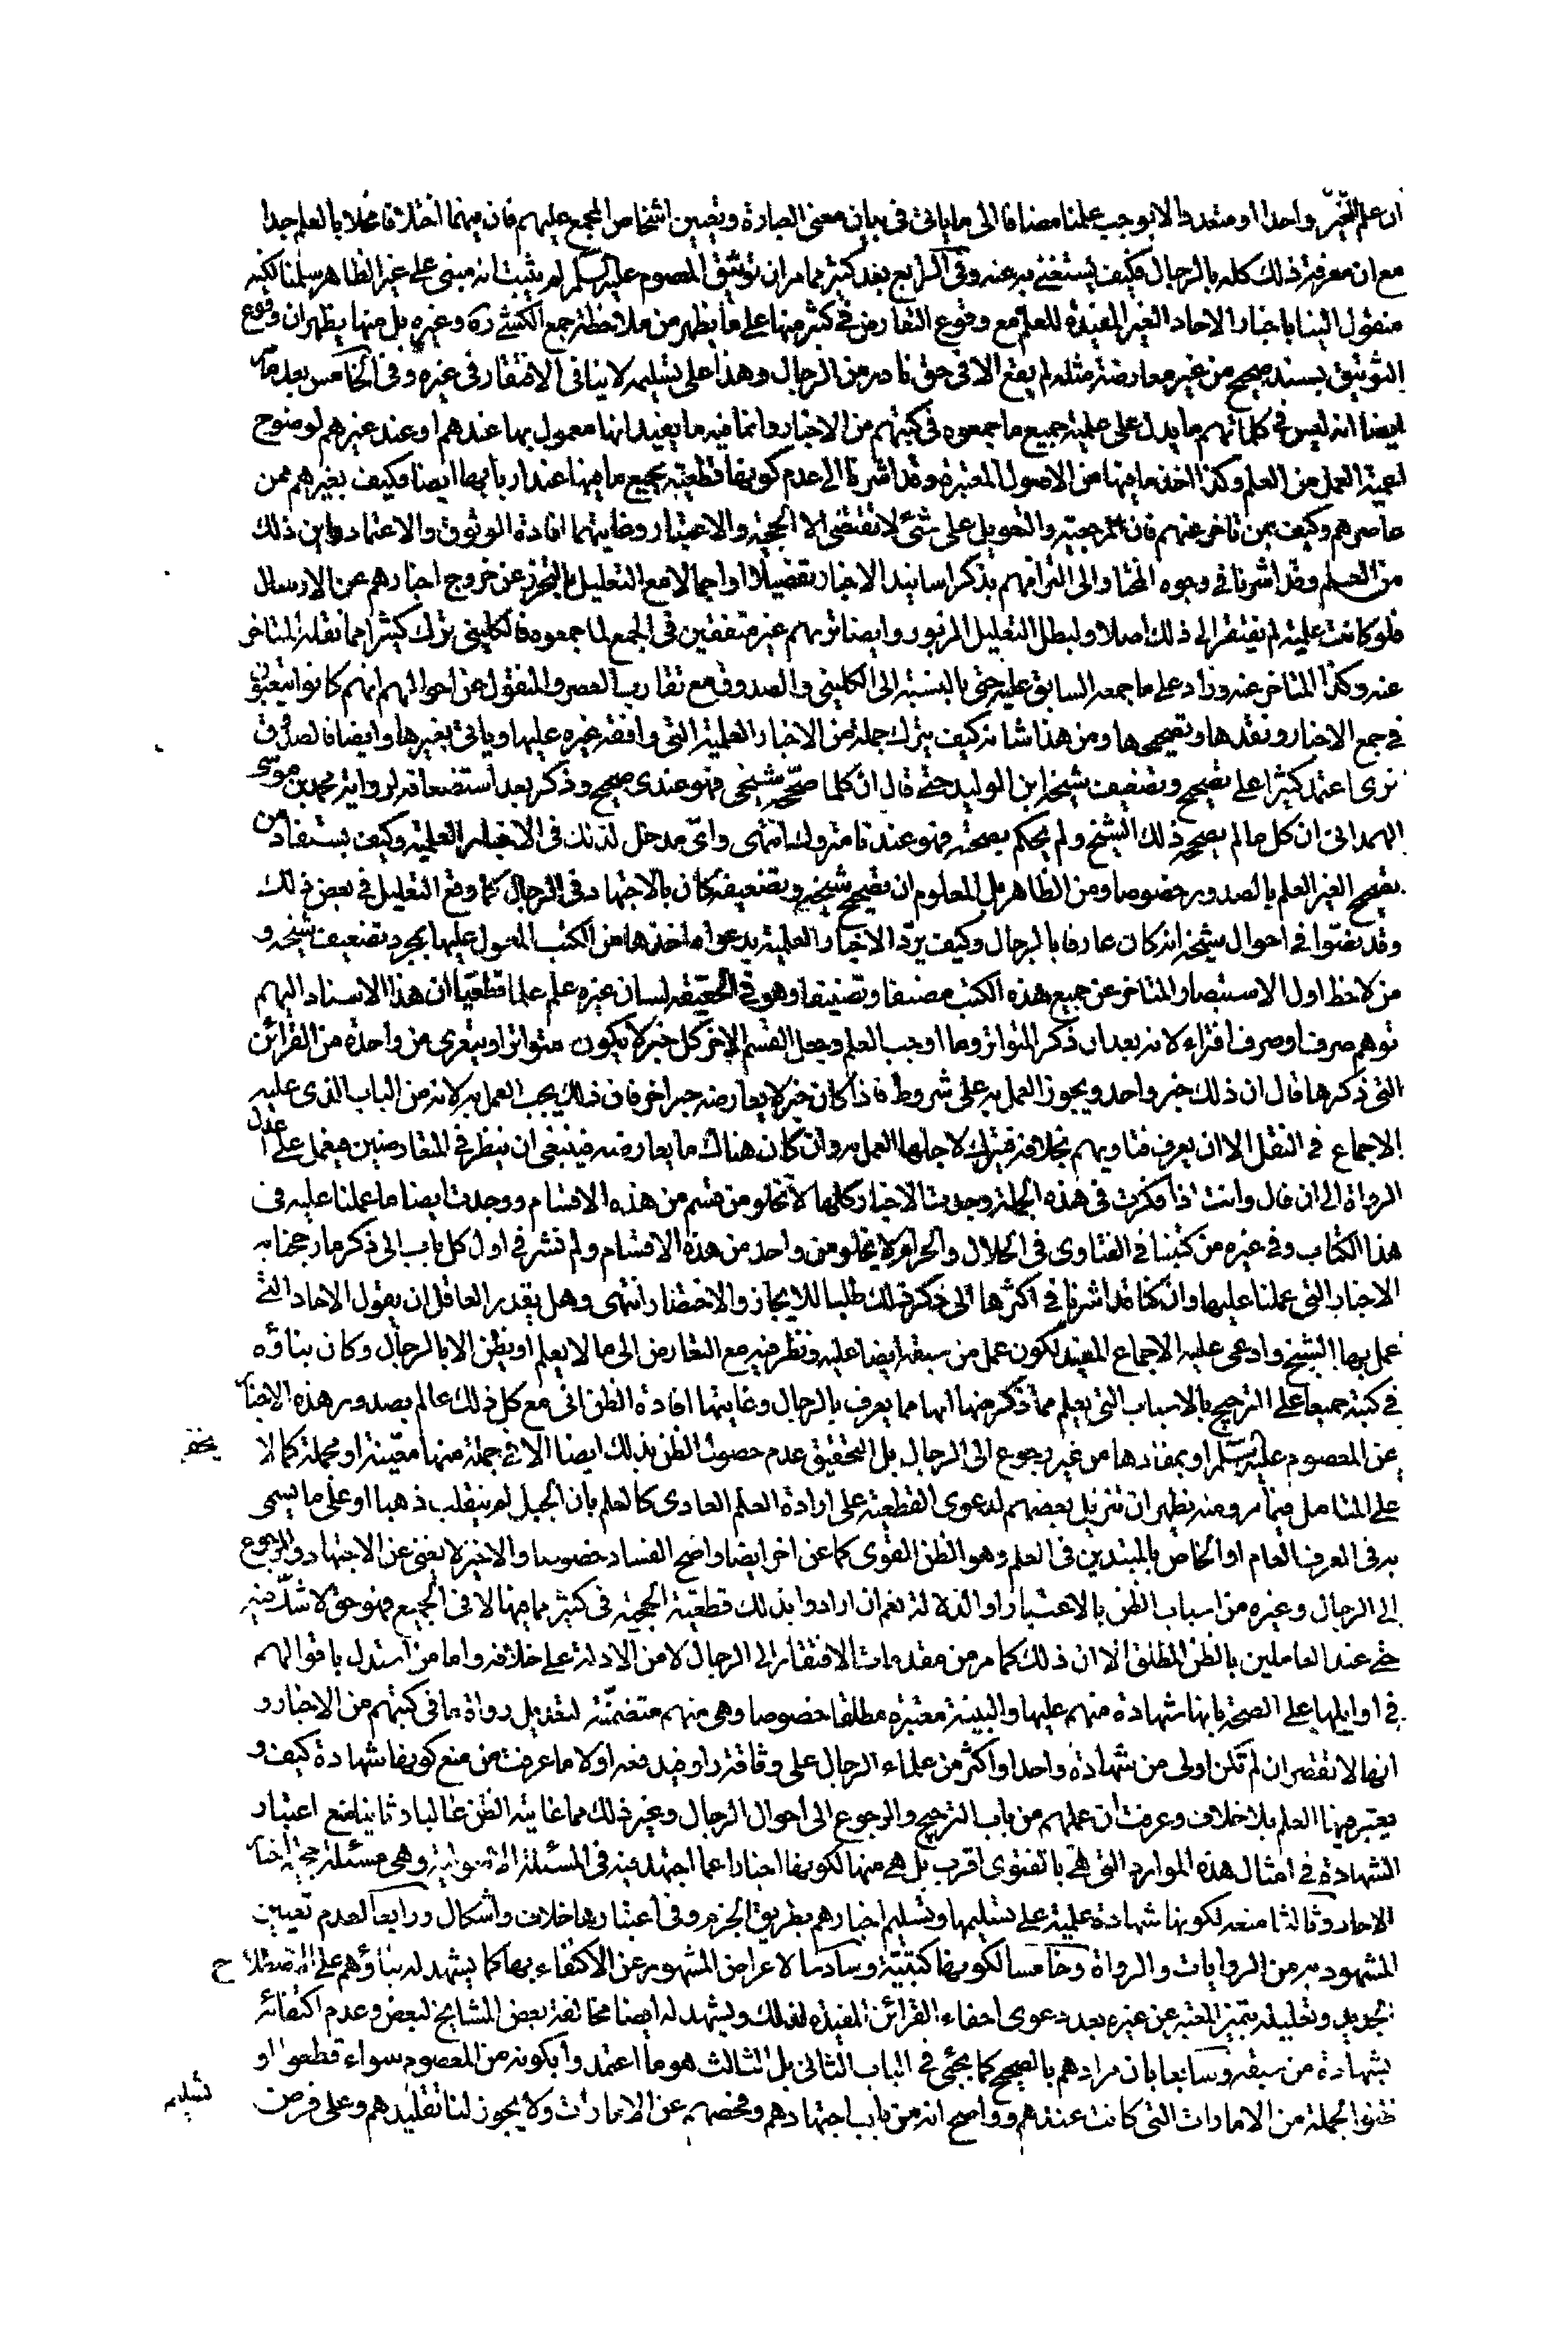 ان علم المخبر واحدا او متعددا لا يوجب علمنا مضافا الى ما ياتى فى بيان معنى العبارة وتعيين اشخاص المجمع عليهم فان فيهما اختلافا مخلا بالعلم جدا
مع ان معرفة ذلك كله بالرجال فكيف يستغنى به عنه وفى الرابع بعد كثير مما مر ان توثيق المعصوم عليه السلم لم يثبت انه مبنى على غير الظاهر سلمنا لكنه
منقول الينا باخبار الاحاد الغير المفيدة للعلم مع وقوع التعارض فى كثير منها على ما يظهر من ملاحظة جمع الكشى ره وغيره بل منها يظهر ان وقوع
التوثيق بسند صحيح من غير معارضة مثله لم يقع الا فى حق نادر من الرجال وهذا على تسليمه لا ينافى الافتقار فى غيره وفى الخامس بعد ما مر
ايضا انه ليس فى كلماتهم ما يدل على علمية جميع ما جمعوه فى كتبهم من الاخبار وانما فيه ما يفيد انها معمول بها عندهم او عند غيرهم لوضوح
اعمية العمل من العلم وكذا اخذ ما فيها من الاصول المعتبرة وقد اشرنا الى عدم كونها قطعية بجميع ما فيها عند اربابها ايضا فكيف بغيرهم ممن
عاصرهم وكيف بمن تاخر عنهم فان المرجعية والتعويل على شئ لا تقتضى الا الحجية والاعتبار وغايتهما افادة الوثوق والاعتماد واين ذلك
من العلم وقد اشرنا فى وجوه المختار الى التزامهم بذكر اسانيد الاخبار تفصيلا او اجمالا مع التعليل بالتحرز عن خروج اخبارهم عن الارسال
فلو كانت علمية لم يفتقر الى ذلك اصلا ولبطل التعليل المزبور وايضا تريهم غير متفقين فى الجمع لما جمعوه فالكلينى ترك كثيرا مما نقله المتاخر
عنه وكذا المتاخر عنه وزاد على ما جمعه السابق عليه حتى بالنسبة الى الكلينى والصدوق مع تقارب العصر والمنقول من احوالهم انهم كانوا يتعبون
فى جمع الاخبار ونقدها وتصحيحها ومن هذا شانه كيف يترك جملة من الاخبار العلمية التى وافقه غيره عليها وياتى بغيرها وايضا فالصدوق
نرى اعتمد كثيرا على تصحيح وتضعيف شيخه ابن الوليد حتى قال ان كلما صححه شيخى فهو عندى صحيح وذكر بعد استضعافه لرواية محمد بن موسى
الهمدانى ان كل ما لم يصححه ذلك الشيخ ولم يحكم بصحته فهو عندنا متروك انتهى واى مدخل لذلك فى الاخبار العلمية وكيف يستفاد من
تصحيح الغير العلم بالصدور خصوصا ومن الظاهر بل المعلوم ان تصحيح شيخه وتضعيفه كان بالاجتهاد فى الرجال كما وقع التعليل فى بعض ذلك
وقد نصّوا فى احوال شيخه انه كان عارفا بالرجال وكيف يردّ الاخبار العلمية بدعواه ماخذها من الكتب المعول عليها بمجرد تضعيف شيخه و
من لاحظ اول الاستبصار المتاخر عن جميع هذه الكتب مصنفا وتصنيفا وهو فى الحقيقة لسان غيره علم علما قطعيا ان هذا الاسناد اليهم
توهم صرف او صرف افتراء لانه بعد ان ذكر المتواتر وما اوجب العلم وجعل القسم الاخر كل خبر لا يكون متواترا ويتعرى من واحدة من القرائن
التى ذكرها قال ان ذلك خبر واحد ويجوز العمل به على شروط فاذا كان خبر لا يعارضه خبر اخر فان ذلك يجب العمل به لانه من الباب الذى عليه
الاجماع فى النقل الا ان يعرف فتاويهم بخلافه فيترك لاجلها العمل به وان كان هناك ما يعارضه فينبغى ان ينظر فى المتعارضين فيعمل على اعدل
الرواة الى ان قال وانت اذا فكرت فى هذه الجملة وجدت الاخبار كلها لا تخلو من قسم من هذه الاقسام ووجدت ايضا ما عملنا عليه فى
هذا الكتاب وفى غيره من كتبنا فى الفتاوى فى الحلال والحرام لا يخلو من واحد من هذه الاقسام ولم نشر فى اول كل باب الى ذكر ما رجحنا به
الاخبار التى عملنا عليها وان كنا قد اشرنا فى اكثرها الى ذكر ذلك طلبا للايجاز والاختصار انتهى وهل يقدر العاقل ان يقول الاحاد التى
عمل بها الشيخ وادعى عليه الاجماع المفيد لكون عمل من سبقه ايضا عليه ونظر فيه مع التعارض الى ما لا يعلم او يظن الا بالرجال وكان بناؤه
فى كتبه جميعا على الترجيح بالاسباب التى يعلم مما ذكر منها انها مما يعرف بالرجال وغايتها افادة الظن انى مع كل ذلك عالم بصدور هذه الاخبار
عن المعصوم عليه السلم او بمفادها من غير رجوع الى الرجال بل التحقيق عدم حصول الظن بذلك ايضا الا فى جملة منها معينة او مجملة كما لا يخفى
على المتامل فيما مر ومنه يظهر ان تنزيل بعضهم لدعوى القطعية على ارادة العلم العادى كالعلم بان الجبل لم ينقلب ذهبا او على ما يسمى
به فى العرف العام او الخاص بالمبتدين فى العلم وهو الظن القوى كما عن اخر ايضا واضح الفساد خصوصا والاخير لا يغنى عن الاجتهاد والرجوع
الى الرجال وغيره من اسباب الظن بالاعتبار او الدلالة نعم ان ارادوا بذلك قطعية الحجية فى كثير مما فيها لا فى الجميع فهو حق لا شكّ فيه
حتى عند العاملين بالظن المطلق الا ان ذلك كما مر من مقدمات الافتقار الى الرجال لا من الادلة على خلافه واما من استدل باقوالهم
فى اوايلها على الصحة بانها شهادة منهم عليها والبينة معتبرة مطلقا خصوصا وهى منهم متضمّنة لتعديل رواة ما فى كتبهم من الاخبار و
انها لا تقصر ان لم تكن اولى من شهادة واحد او اكثر من علماء الرجال على وثاقة راو فيدفعه اولا ما عرفت من منع كونها شهادة كيف و
يعتبر فيها العلم بلا خلاف وعرفت ان عملهم من باب الترجيح والرجوع الى احوال الرجال وغير ذلك مما غايته الظن غالبا وثانيا منع اعتبار
الشهادة فى امثال هذه الموارد التى هى بالفتوى اقرب بل هى منها لكونها اخبارا عما اجتهد فيه فى المسئلة الاصولية وهى مسئلة حجية اخبار
الاحاد وثالثا منعه لكونها شهادة علمية على تسليمها وتسليم اخبارهم بطريق الجزم وفى اعتبارها خلاف واشكال ورابعا لعدم تعيين
المشهود به من الروايات والرواة وخامسا لكونها كتبيّة وسادسا لاعراض المشهور عن الاكتفاء بها كما يشهد له بناؤهم على الاصطلاح
الجديد وتعليله بتميز المعتبر عن غيره بعد دعوى اخفاء القرائن المفيدة لذلك ويشهد له ايضا مخالفة بعض المشايخ لبعض وعدم اكتفائه
بشهادة من سبقه وسابعا بان مرادهم بالصحيح كما يجئى فى الباب الثانى بل الثالث هو ما اعتمدوا بكونه من المعصوم سواء قطعوا او
ظنوا لجملة من الامارات التى كانت عندهم وواضح انه من باب اجتهادهم وفحصهم عن الامارات ولا يجوز لنا تقليدهم وعلى فرض تسليمه